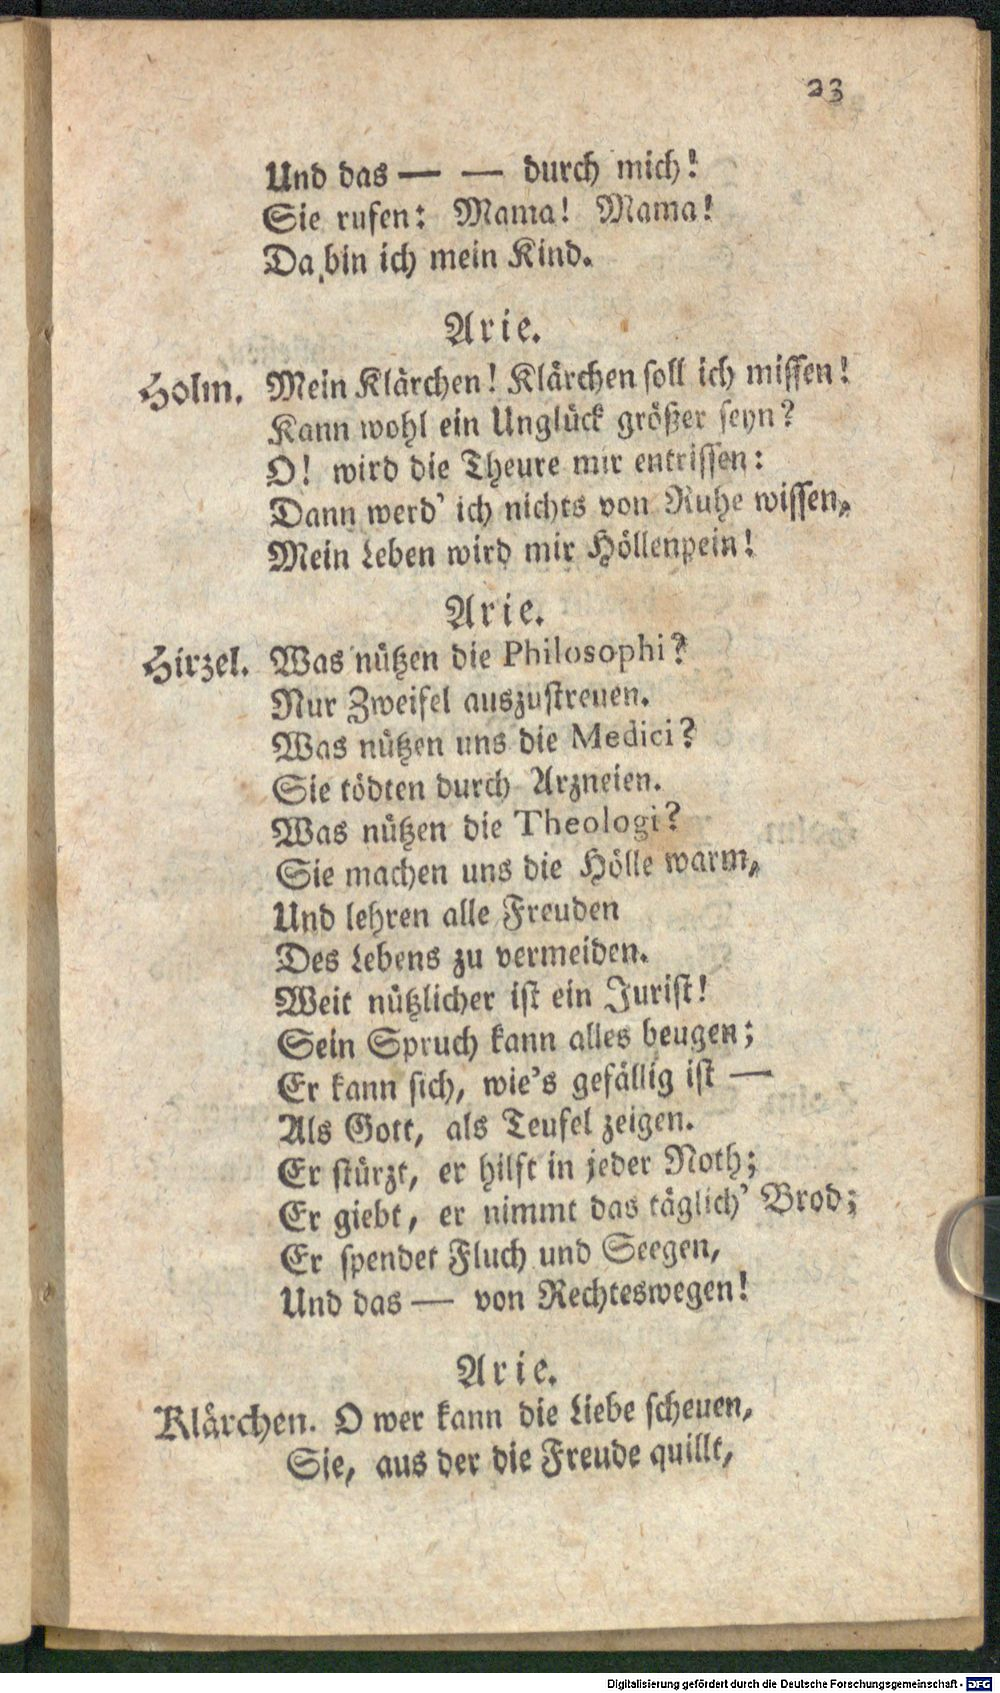 23
Und das — — durch mich!
Sie rufen: Mama! Mama!
Da bin ich mein Kind.
Arie.
Holm. Mein Klärchen! Klärchen soll ich missen!
Kann wohl ein Unglück größer seyn?
O! wird die Theure mir entrissen:
Dann werd' ich nichts von Ruhe wissen,
Mein Leben wird mir Höllenpein!
Arie.
Hirzel. Was nützen die Philosophi?
Nur Zweifel auszustreuen.
Was nützen uns die Medici?
Sie tödten durch Arzneien.
Was nützen die Theologi?
Sie machen uns die Hölle warm,
Und lehren alle Freuden
Des Lebens zu vermeiden.
Weit nützlicher ist ein Jurist!
Sein Spruch kann alles beugen;
Er kann sich, wie's gefällig ist —
Als Gott, als Teufel zeigen.
Er stürzt, er hilft in jeder Noth;
Er giebt, er nimmt das täglich' Brod;
Er spendet Fluch und Seegen,
Und das — von Rechteswegen!
Arie.
Klärchen. O wer kann die Liebe scheuen,
Sie, aus der die Freude quillt,
Digitalisierung gefördert durch die Deutsche Forschungsgemeinschaft - DFG